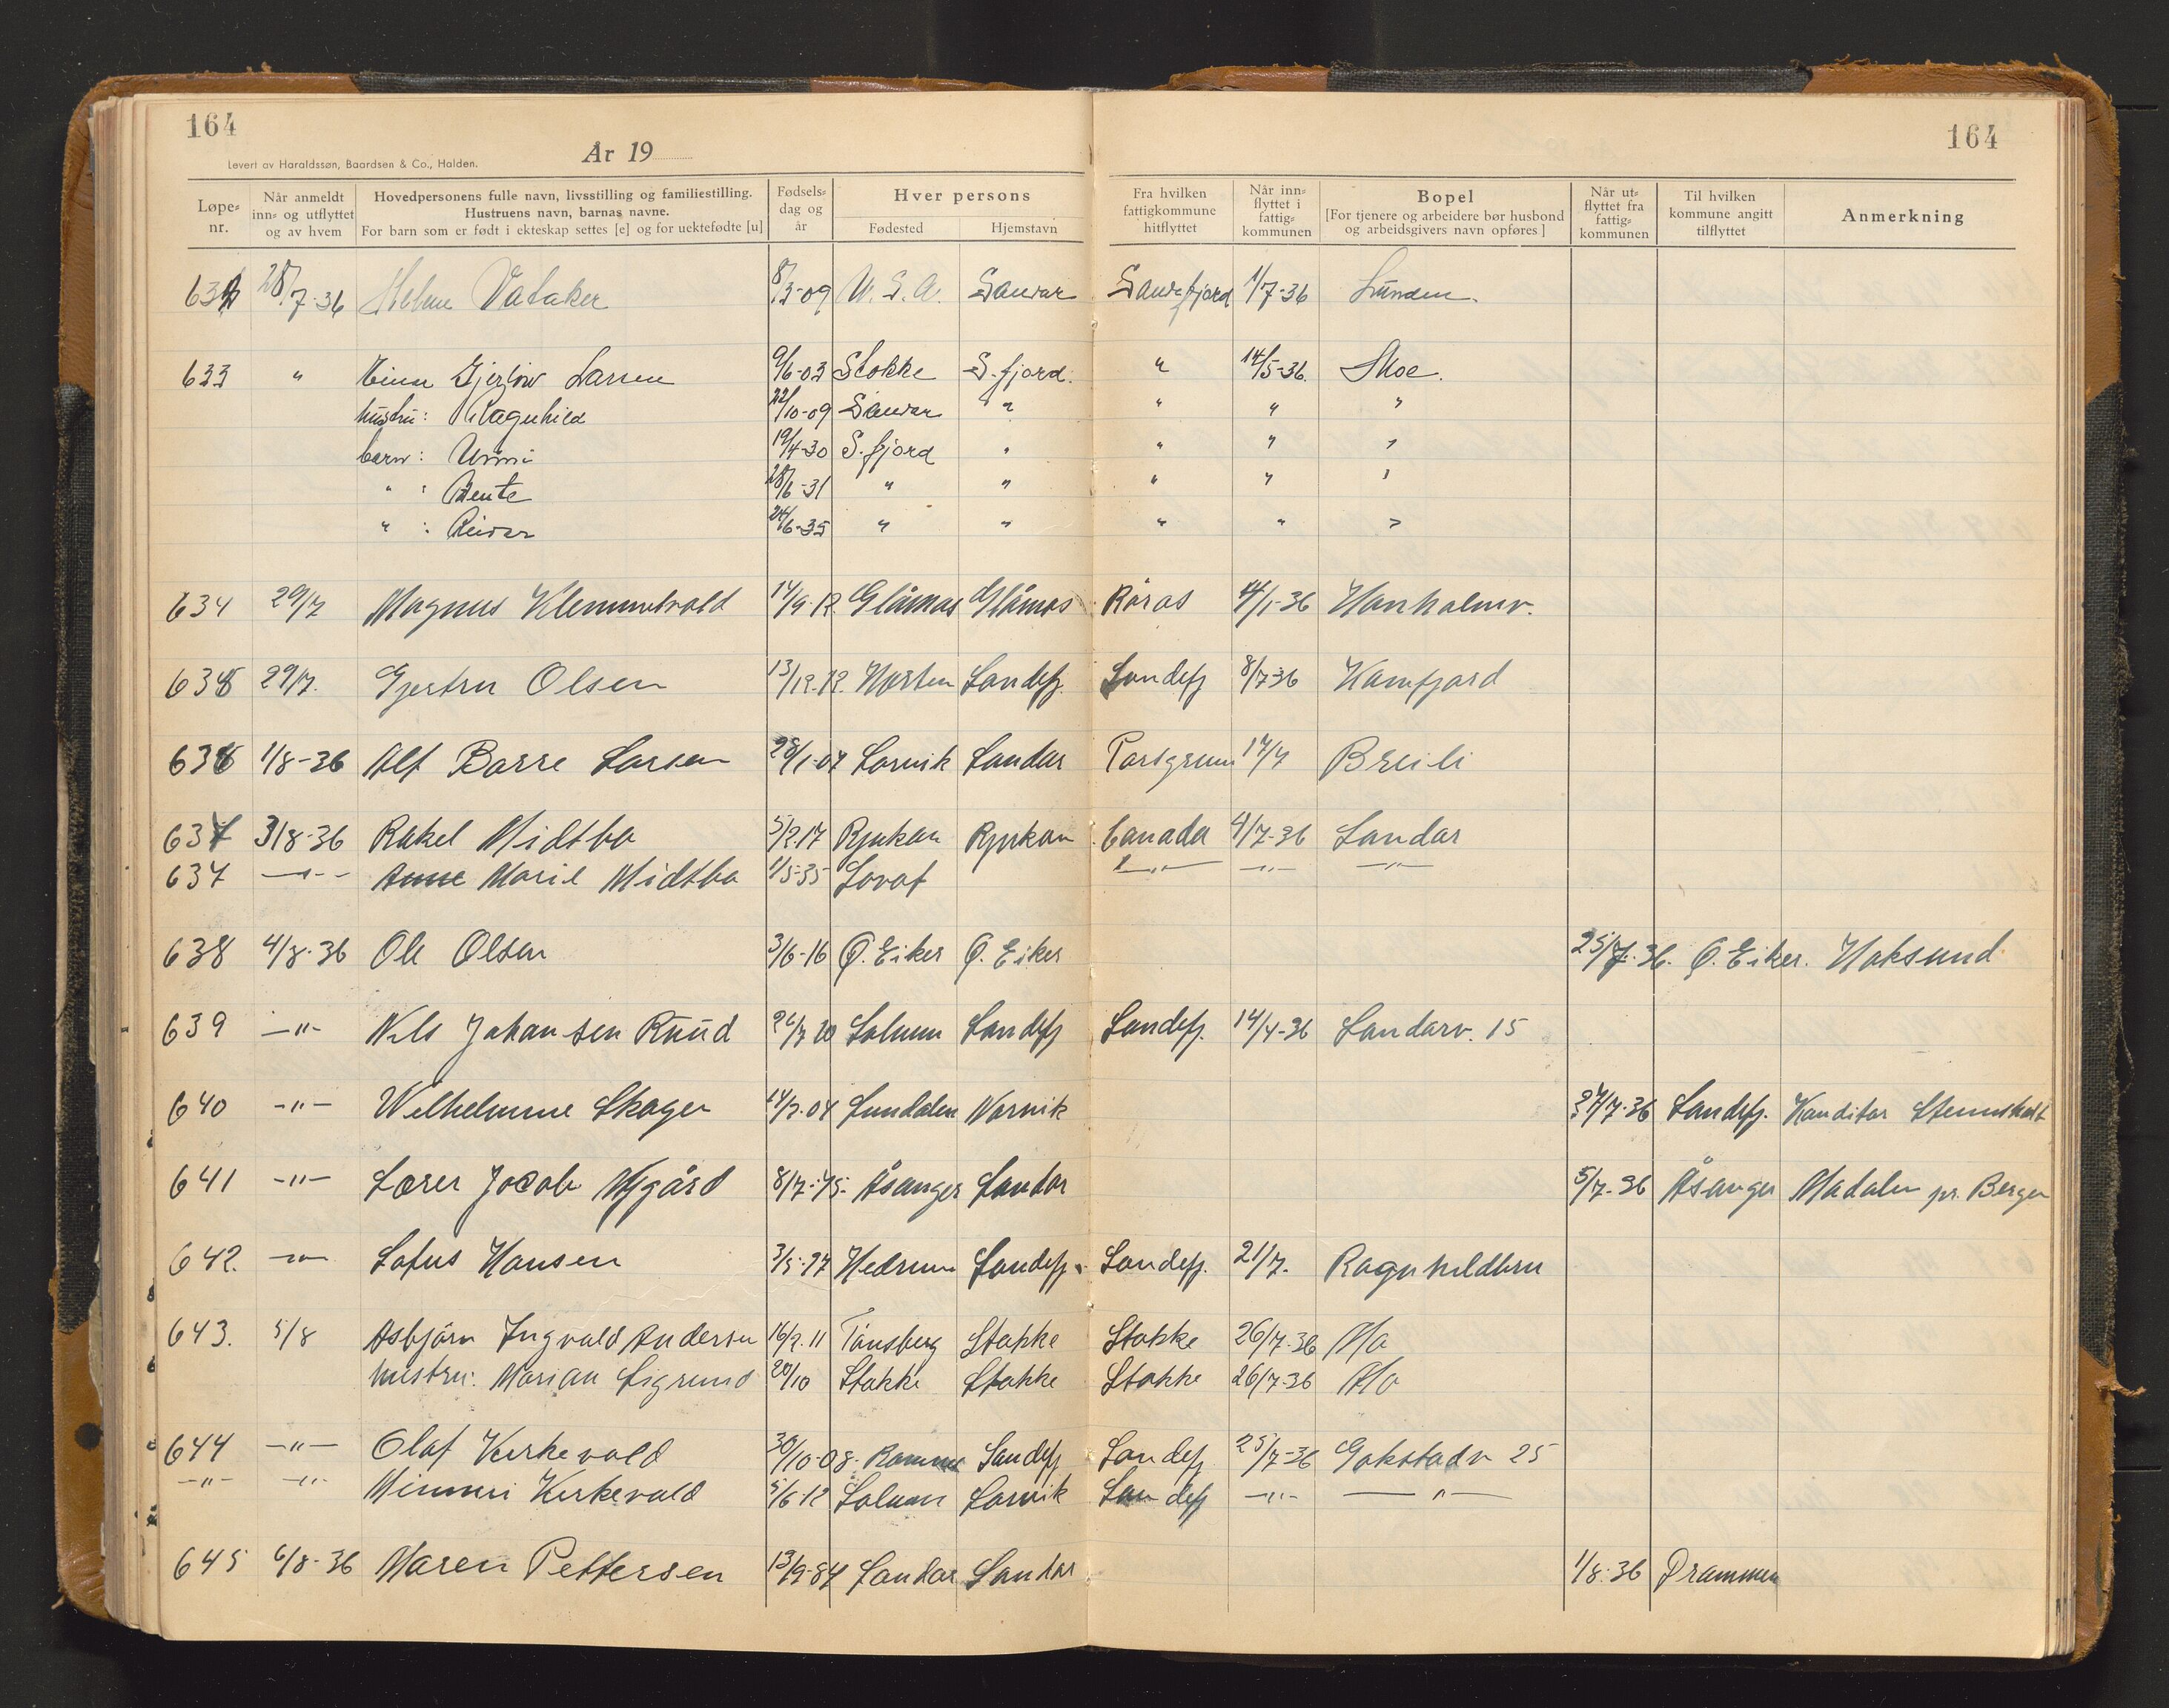 164
164
Levert av Haraldssøn, Baardsen & Co., Halden.
År 19
Løpe-nr. Når anmeldt inn- og utflyttet og av hvem Hovedpersonens fulle navn, livsstilling og familiestilling. Hustruens navn, barnas navne. For barn som er født i ekteskap settes [e] og for uektefødte [u] Fødsels-dag og år Hver persons Fødested Hjemstavn Fra hvilken fattigkommune hitflyttet Når inn-flyttet i fattig-kommunen Bopel [For tjenere og arbeidere bør husbond og arbeidsgivers navn opføres] Når ut-flyttet fra fattig-kommunen Til hvilken kommune angitt tilflyttet Anmerkning
632 28/7-36 Helene Vataker 8/3-09 U.S.A. Sandar Sandefjord 1/7-36 Lunden.
633 " Einar Larsen 9/6-03 Stokke S.fjord. " 14/5-36. Moe.
hustru: Ragnhild 22/10-09 Sandar " " " "
barn: Unni 19/4-30 S.fjord " " " "
" : Bente 28/6-31 " " " " "
" : Reidar 24/6-35 " " " " "
634 29/7 Magnus Klemmetvold 14/9-12 Glåmos Glåmos Røros 14/1-36 Hanholmv.
635 29/7. Gjertru Olsen 13/12-12. Horten Sandefj. Sandefj 8/7-36 Kamfjord
636 1/8-36 Alf Barre Larsen 28/1-07 Larvik Sandar Porsgrunn 17/7 Breili
637 3/8-36 Rakel Midtbø 5/2-17 Rjukan Rjukan Canada 4/7-36 Sandar
637 -"- Anne Marie Midtbø 1/5-35 -"- -"- -"-
638 4/8-36 Ole Olsen 3/6-16 Ø. Eiker Ø. Eiker 25/7-36. Ø. Eiker. Hoksund
639 -"- Nils Johansen Ruud 26/7 20 Solum Sandefj Sandefj. 14/4-36 Sandarv. 15
640 -"- Wilhelmine Skogen 14/2-04 Sundalen Narvik 27/7-36 Sandefj. Konditor
641 -"- Lærer Jacob Mygård 8/7-75. Åsanger Sandar 5/7-36 Åsanger Madalen pr. Bergen
642. -"- Lotus Hansen 3/5-27 Hedrum Sandefj. Sandefj. 21/7. Ragnhildbru
643. 5/8 Asbjørn Ingvald Andersen 16/2-11 Tønsberg Stokke Stokke 26/7-36 Mo
hustru: Marian Sigrund 20/10 Stokke Stokke Stokke 26/7-36 Mo
644 -"- Olaf Kirkevold 30/10-08. Ramnes Sandefj Sandefj 25/7-36 Gokstadv 25
-"- -"- Mimmi Kirkevold 5/6-12 Solum Larvik Sandefj -"- -"-
645 6/8-36 Maren Pettersen 13/9-84 Sandar Sandar 1/8-36 Drammen